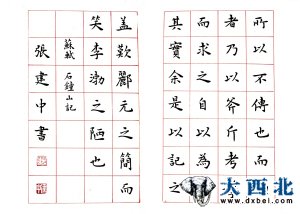 所以不傳也而
者乃以斧斤考
而求之自以為
其實余是以記之
蓋歎酈元之簡而
笑李渤之陋也
蘇軾
石鐘山記
張建中書
大西北
www.dxbei.com